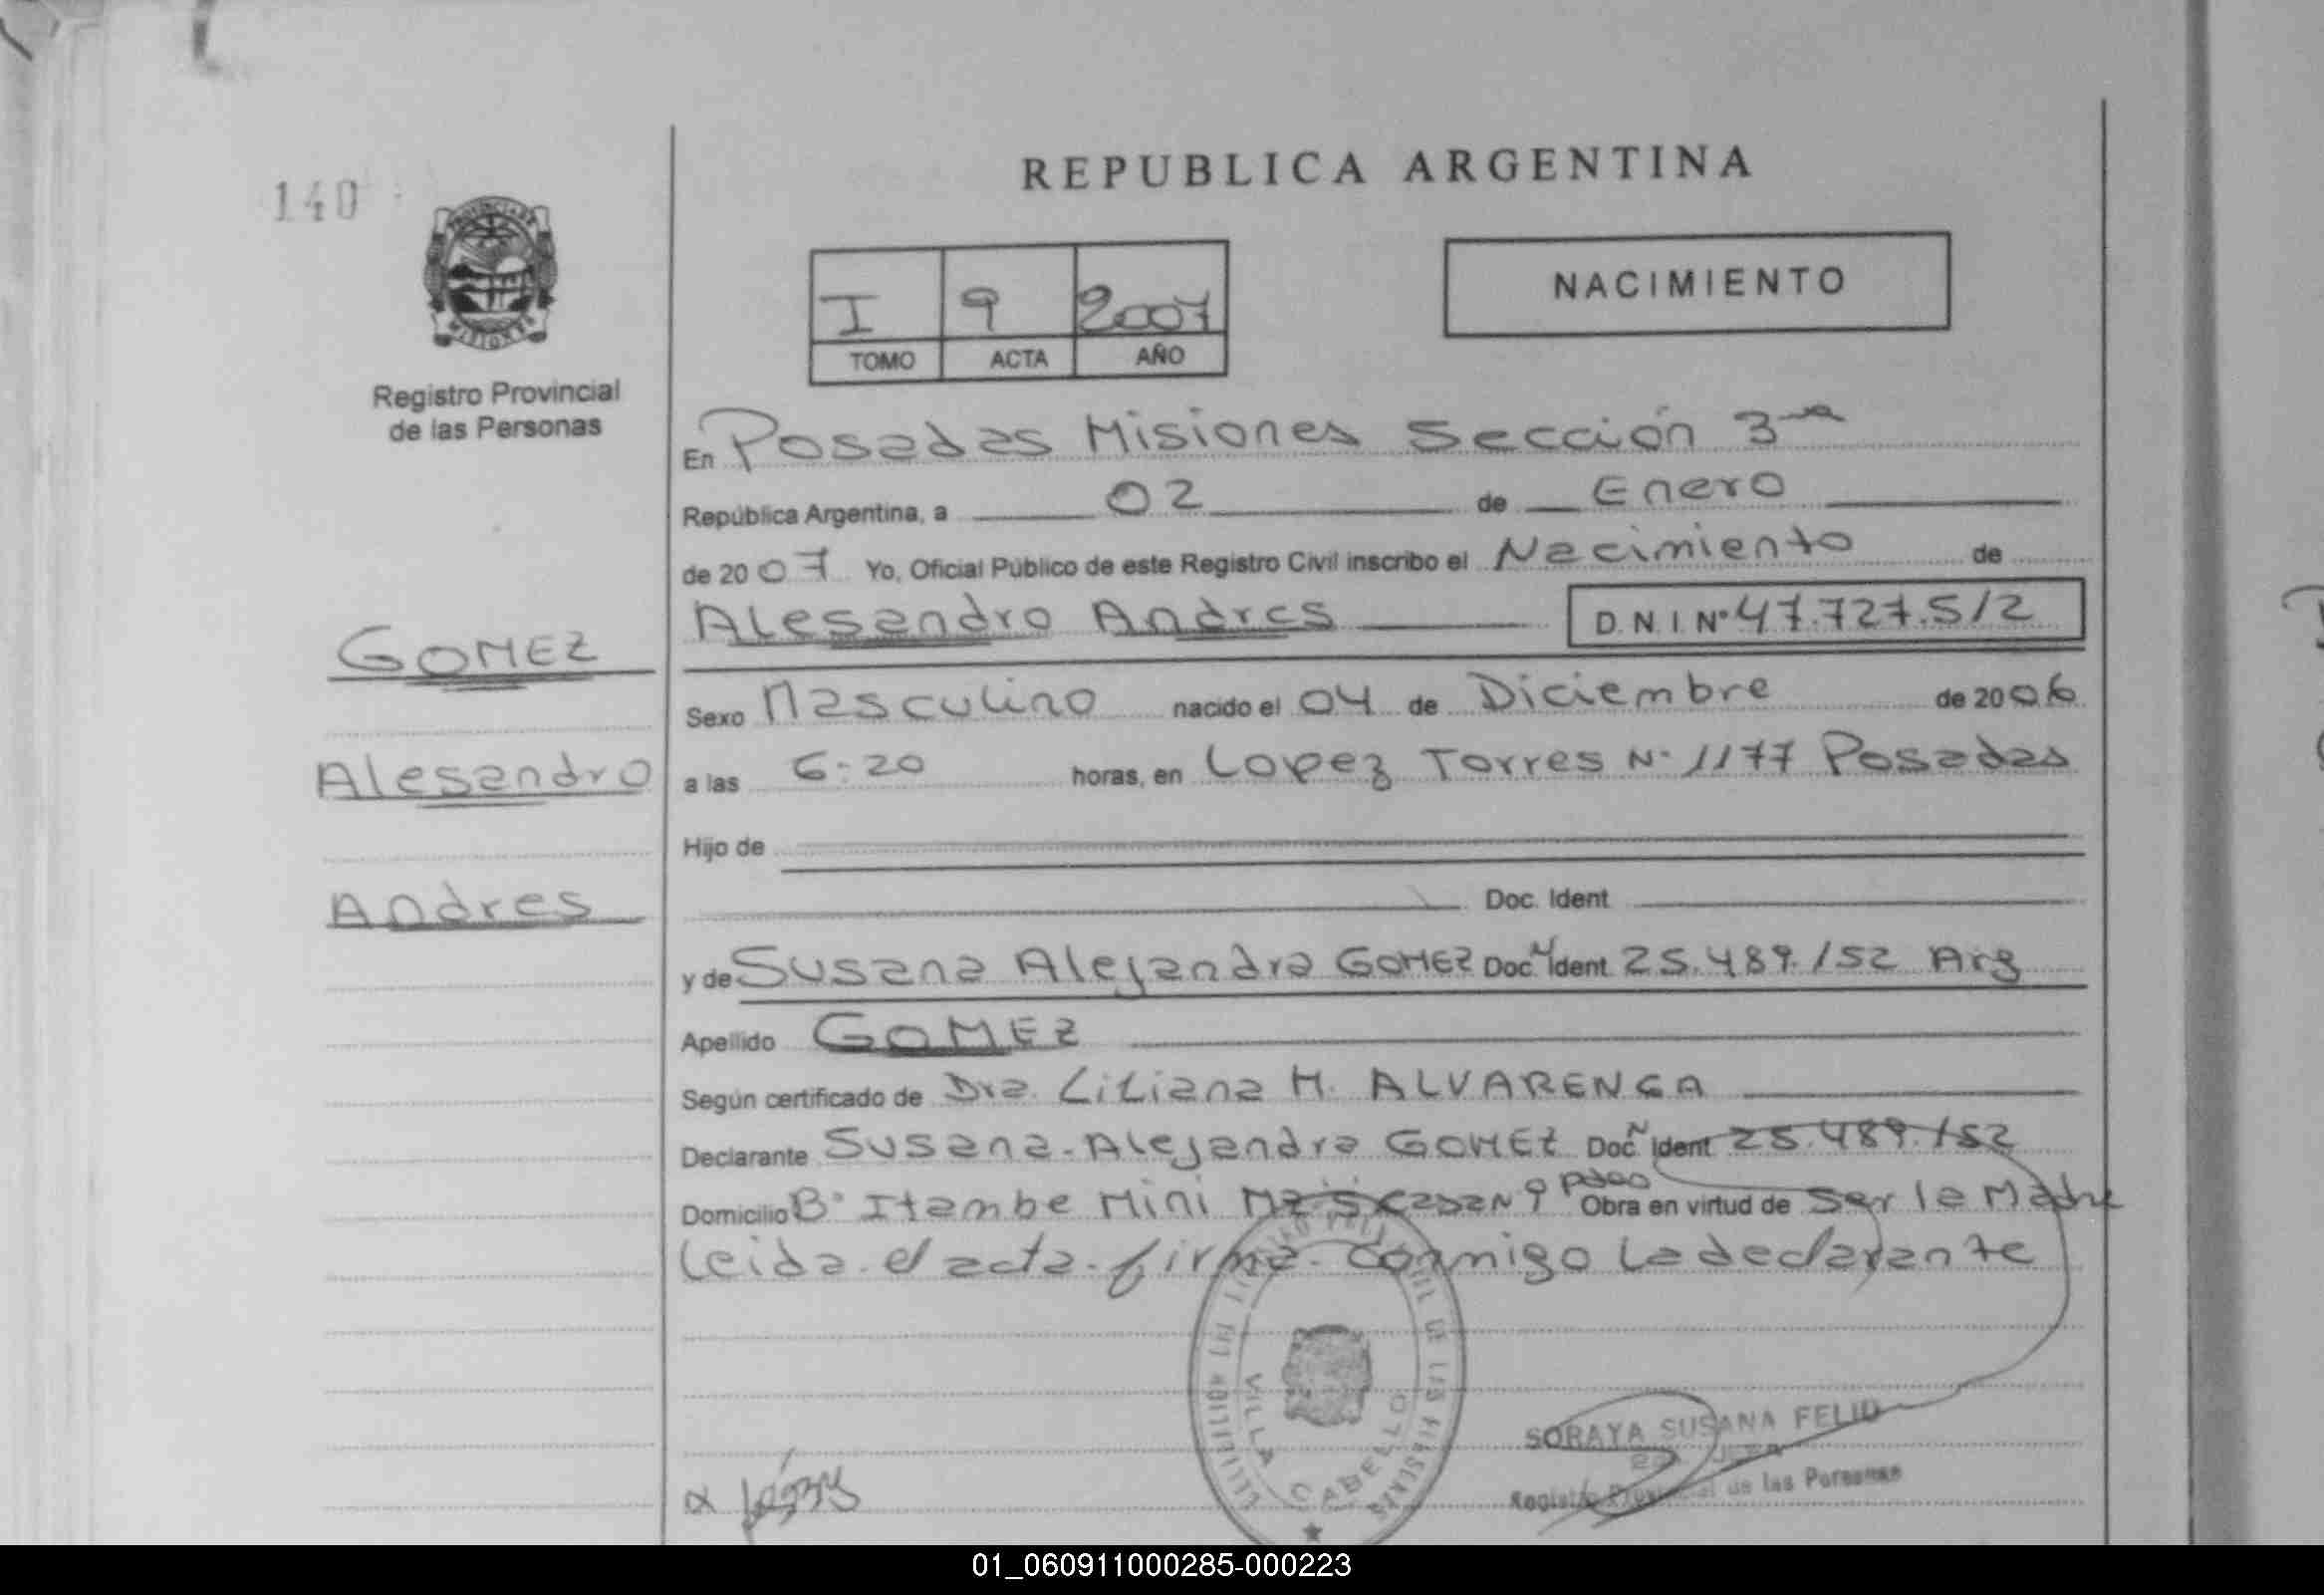 140
REPUBLICA ARGENTINA
I 9 2007
TOMO ACTA AÑO
NACIMIENTO
Registro Provincial
de las Personas
En Posadas Misiones Sección 3ra
República Argentina, a 02 de Enero
de 2007 Yo, Oficial Público de este Registro Civil inscribo el Nacimiento de
Alesandro Andres D.N.I. Nº 47.727.512
GOMEZ
Alesandro
Andres
Sexo Masculino nacido el 04 de Diciembre de 2006
a las 6:20 horas, en Lopez Torres N° 1177 Posadas
Hijo de
Doc. Ident
y de Susana Alejandra GOMEZ Doc. N Ident 25.489.152 Arg
Apellido GOMEZ
Según certificado de Dra. Liliana H. ALVARENGA
Declarante Susana Alejandra GOMEZ Doc. N Ident 25.489.152
Domicilio B° Itambe Mini N 9 Pdas Obra en virtud de ser la Madre
Leida el acta firma conmigo la declarante
VILLA CABELLO
SORAYA SUSANA FELIU
Registro Provincial de las Personas
01_060911000285-000223